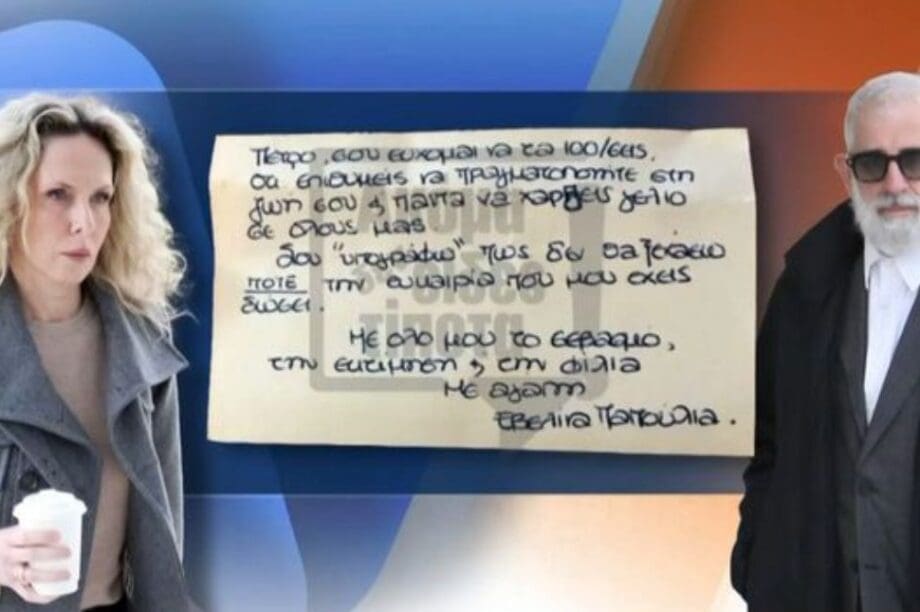 Πέτρο, σου εύχομαι να τα 100/εις,
ότι επιθυμείς να πραγματοποιήτε στη
ζωή σου & πάντα να χαρίζεις γέλιο
σε όλους μας
Σου "υπογράφω" πως δεν θα ξεχάσω
ΠΟΤΕ την ευκαιρία που μου έχεις
δώσει.
Με όλο μου το σεβασμό,
την εκτίμηση & τη φιλία
Με αγάπη
Εβελίνα Παπούλια.
Ακόμα
δεν είδες
τίποτα